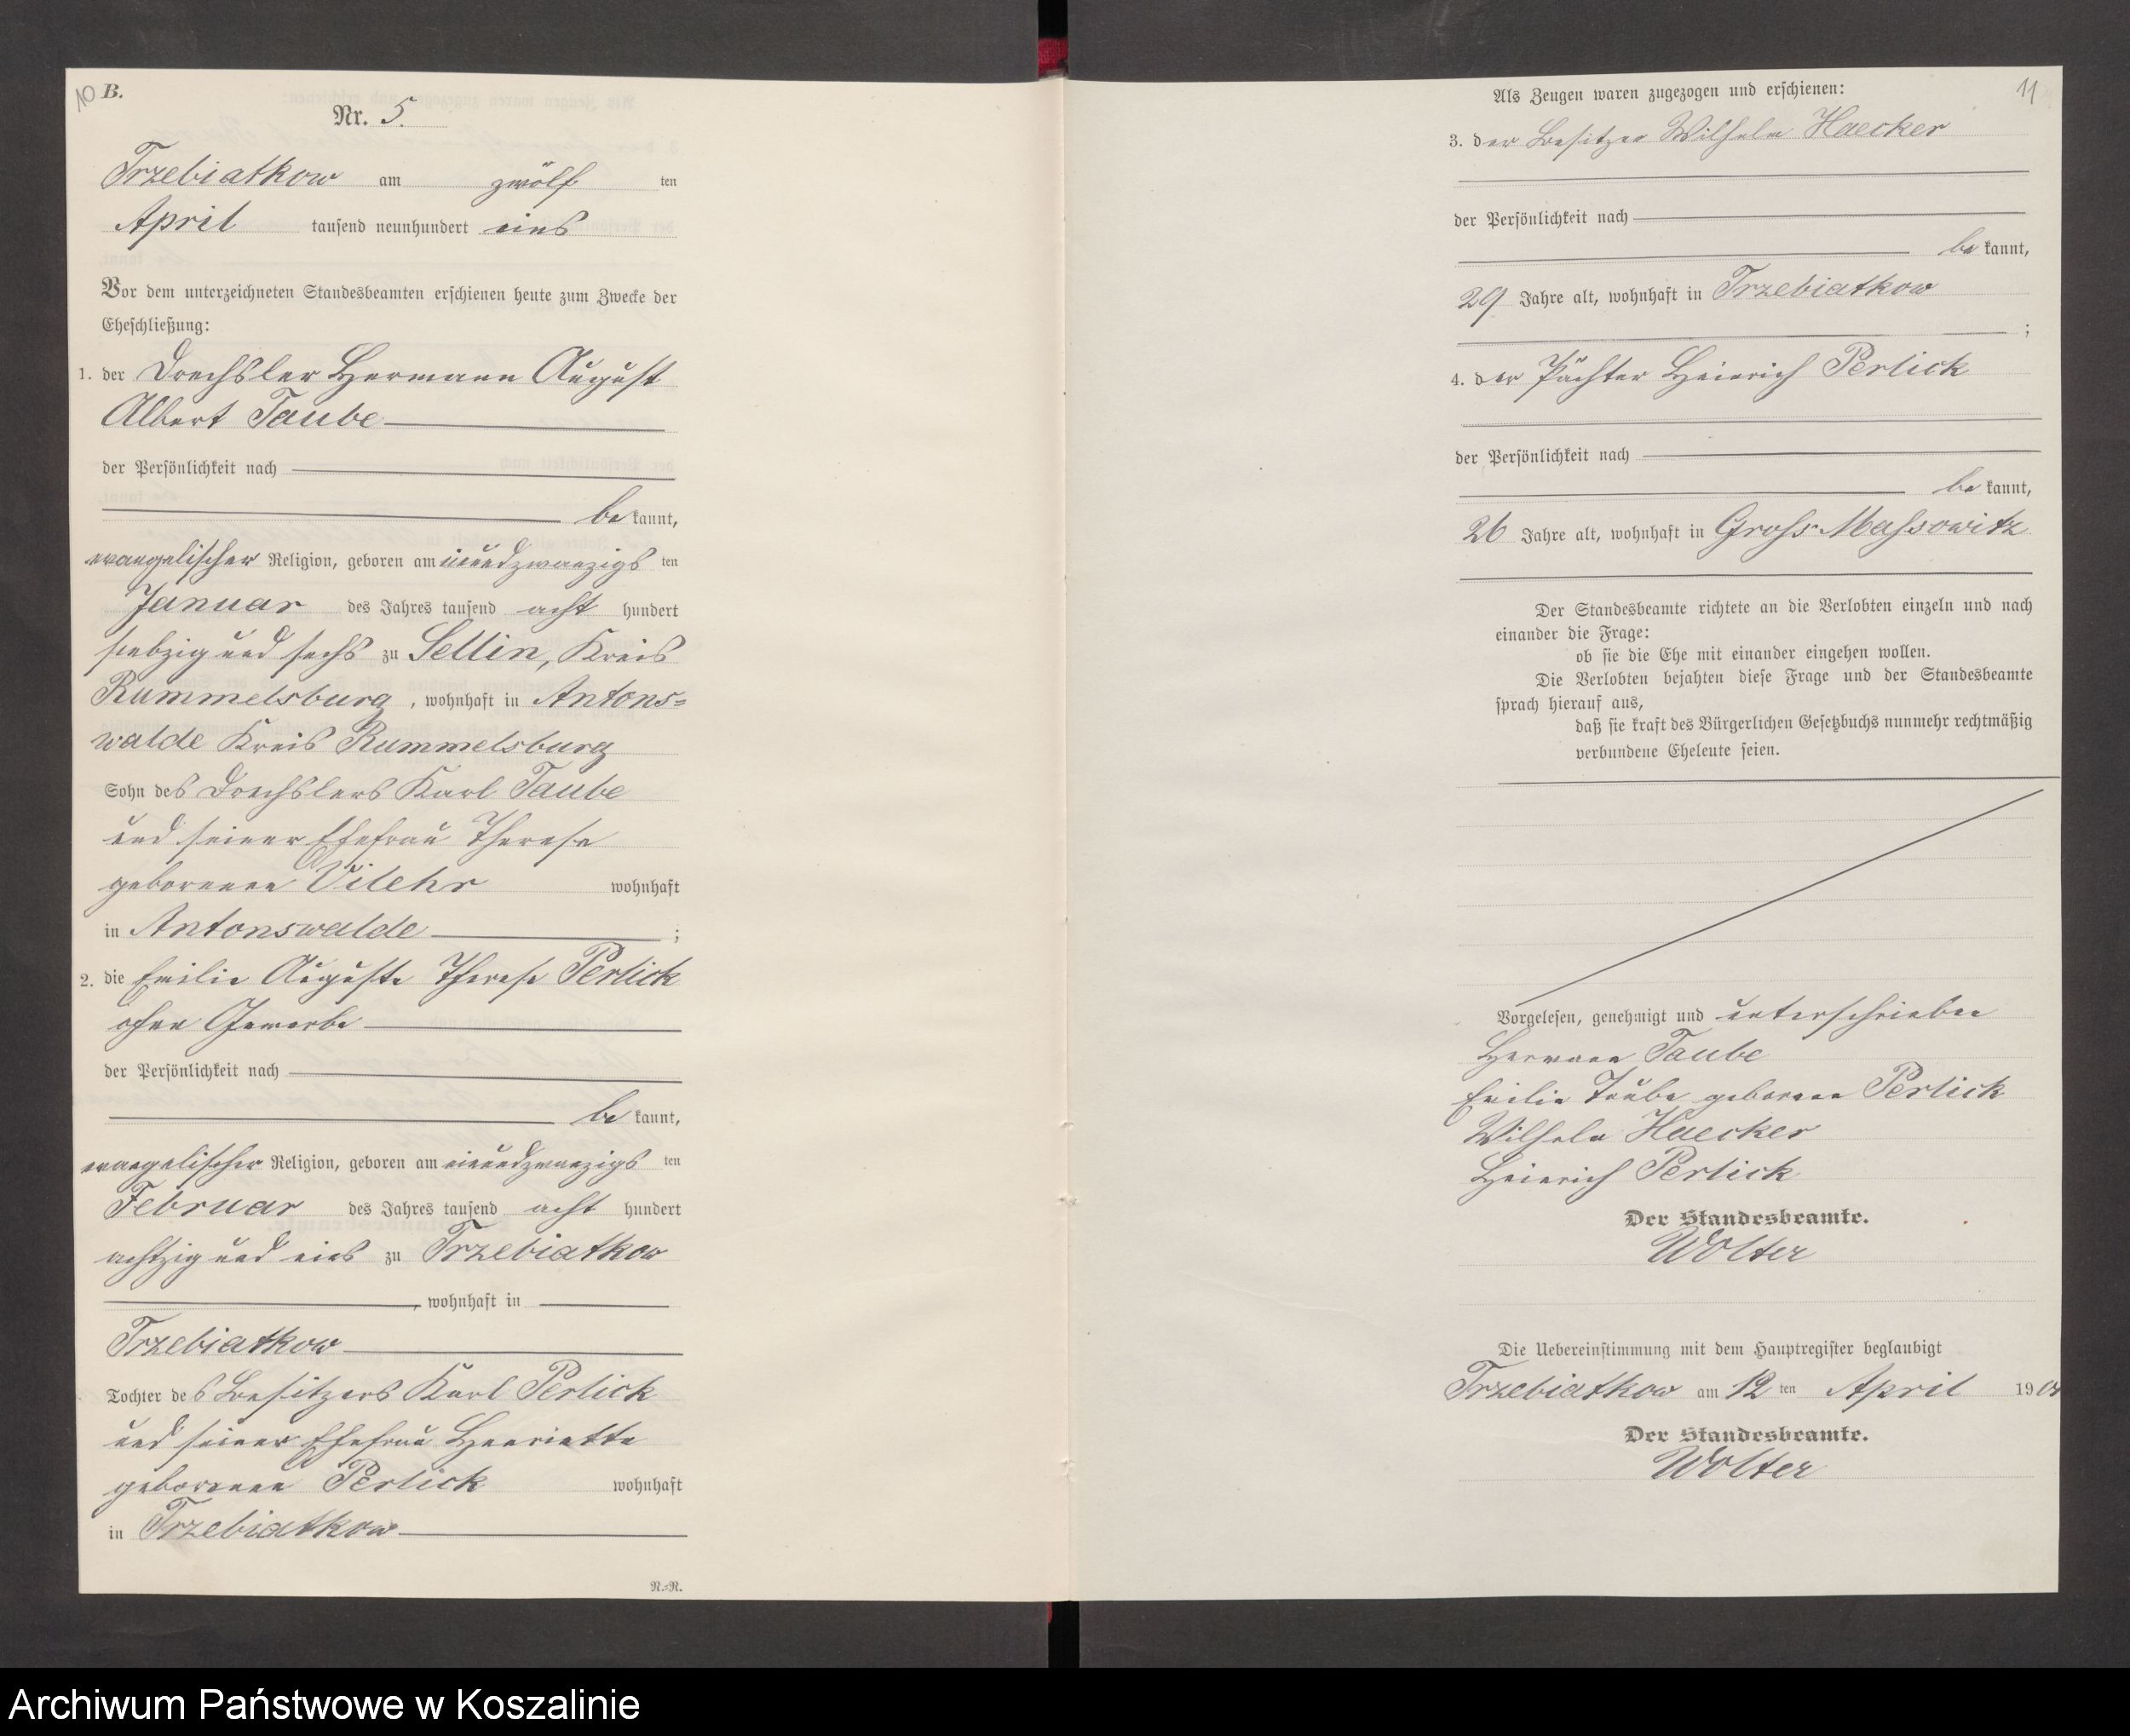 10 B.
Nr. 5.
Trzebiatkow am zwölf ten
April tausend neunhundert eins
Vor dem unterzeichneten Standesbeamten erschienen heute zum Zwecke der
Eheschließung:
1. der Drechsler Hermann August
Albert Taube
der Persönlichkeit nach
be kannt,
evangelischer Religion, geboren am neunundzwanzigs ten
Januar des Jahres tausend acht hundert
siebzig und sechs zu Sellin, Kreis
Rummelsburg, wohnhaft in Antons=
walde Kreis Rummelsburg
Sohn des Drechslers Karl Taube
und seiner Ehefrau Therese
geborenen Vilehr wohnhaft
in Antonswalde ;
2. die Emilie Auguste Therese Perlick
ohne Gewerbe
der Persönlichkeit nach
be kannt,
evangelischer Religion, geboren am einundzwanzigs ten
Februar des Jahres tausend acht hundert
achtzig und eins zu Trzebiatkow
, wohnhaft in
Trzebiatkow
Tochter des Besitzers Karl Perlick
und seiner Ehefrau Henriette
geborenen Perlick wohnhaft
in Trzebiatkow
N.=N.
11
Als Zeugen waren zugezogen und erschienen:
3. der Besitzer Wilhelm Haecker
der Persönlichkeit nach
be kannt,
29 Jahre alt, wohnhaft in Trzebiatkow
;
4. der Pächter Heinrich Perlick
der Persönlichkeit nach
be kannt,
26 Jahre alt, wohnhaft in Gross Massowitz
Der Standesbeamte richtete an die Verlobten einzeln und nach
einander die Frage:
ob sie die Ehe mit einander eingehen wollen.
Die Verlobten bejahten diese Frage und der Standesbeamte
sprach hierauf aus,
daß sie kraft des Bürgerlichen Gesetzbuchs nunmehr rechtmäßig
verbundene Eheleute seien.
Vorgelesen, genehmigt und unterschrieben
Hermann Taube
Emilie Taube geborene Perlick
Wilhelm Haecker
Heinrich Perlick
Der Standesbeamte.
Wolter
Die Uebereinstimmung mit dem Hauptregister beglaubigt
Trzebiatkow am 12 ten April 1901
Der Standesbeamte.
Wolter
Archiwum Państwowe w Koszalinie